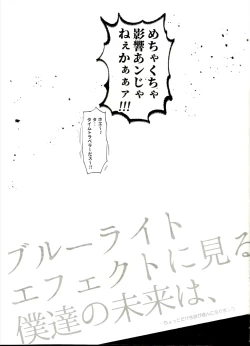 めちゃくちゃ
影響あンじゃ
ねぇかぁぁァ!!!
タイムトラベラーだス…!!
ブルーライト
エフェクトに見る
僕達の未来は、